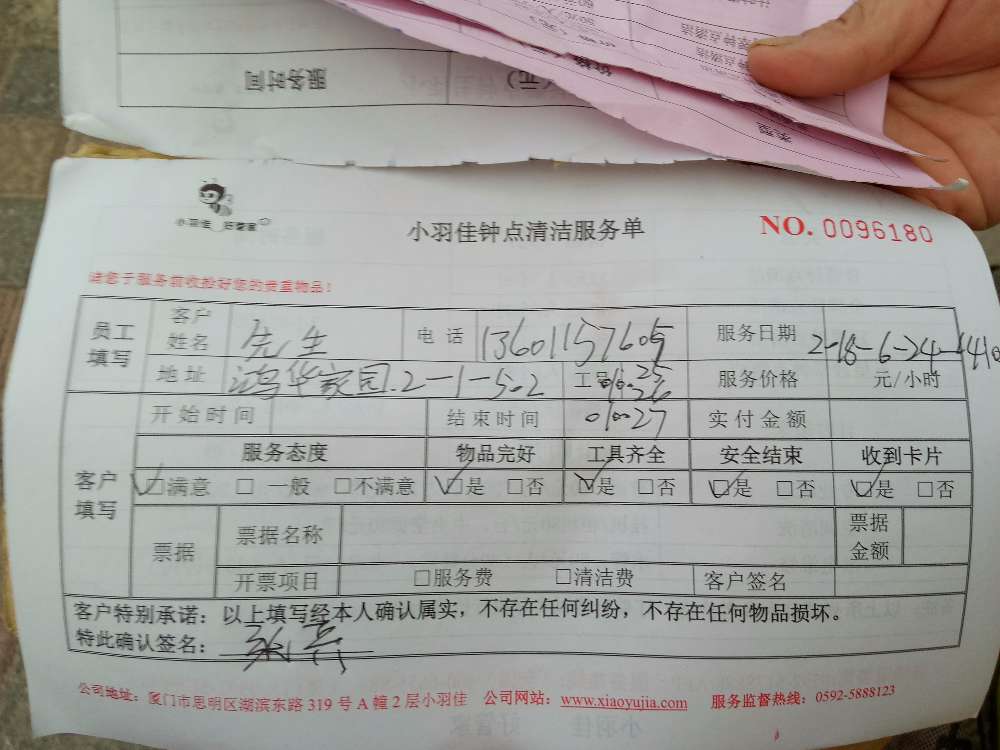 服务时间
(元)
类型
小羽佳 好管家
小羽佳钟点清洁服务单
NO. 0096180
请您于服务前收拾好您的贵重物品！
员工填写 客户姓名 先生 电话 13601157605 服务日期 2-18-6-24
地址 鸿华家园.2-1-502 工号 服务价格 元/小时
开始时间 结束时间 实付金额
客户填写 服务态度 物品完好 工具齐全 安全结束 收到卡片
☑满意 □ 一般 □不满意 ☑是 □否 ☑是 □否 ☑是 □否 ☑是 □否
票据 票据名称 票据金额
开票项目 □服务费 □清洁费 客户签名
客户特别承诺：以上填写经本人确认属实，不存在任何纠纷，不存在任何物品损坏。
特此确认签名：
公司地址：厦门市思明区湖滨东路 319 号 A 幢 2 层小羽佳 公司网站：www.xiaoyujia.com 服务监督热线：0592-5888123